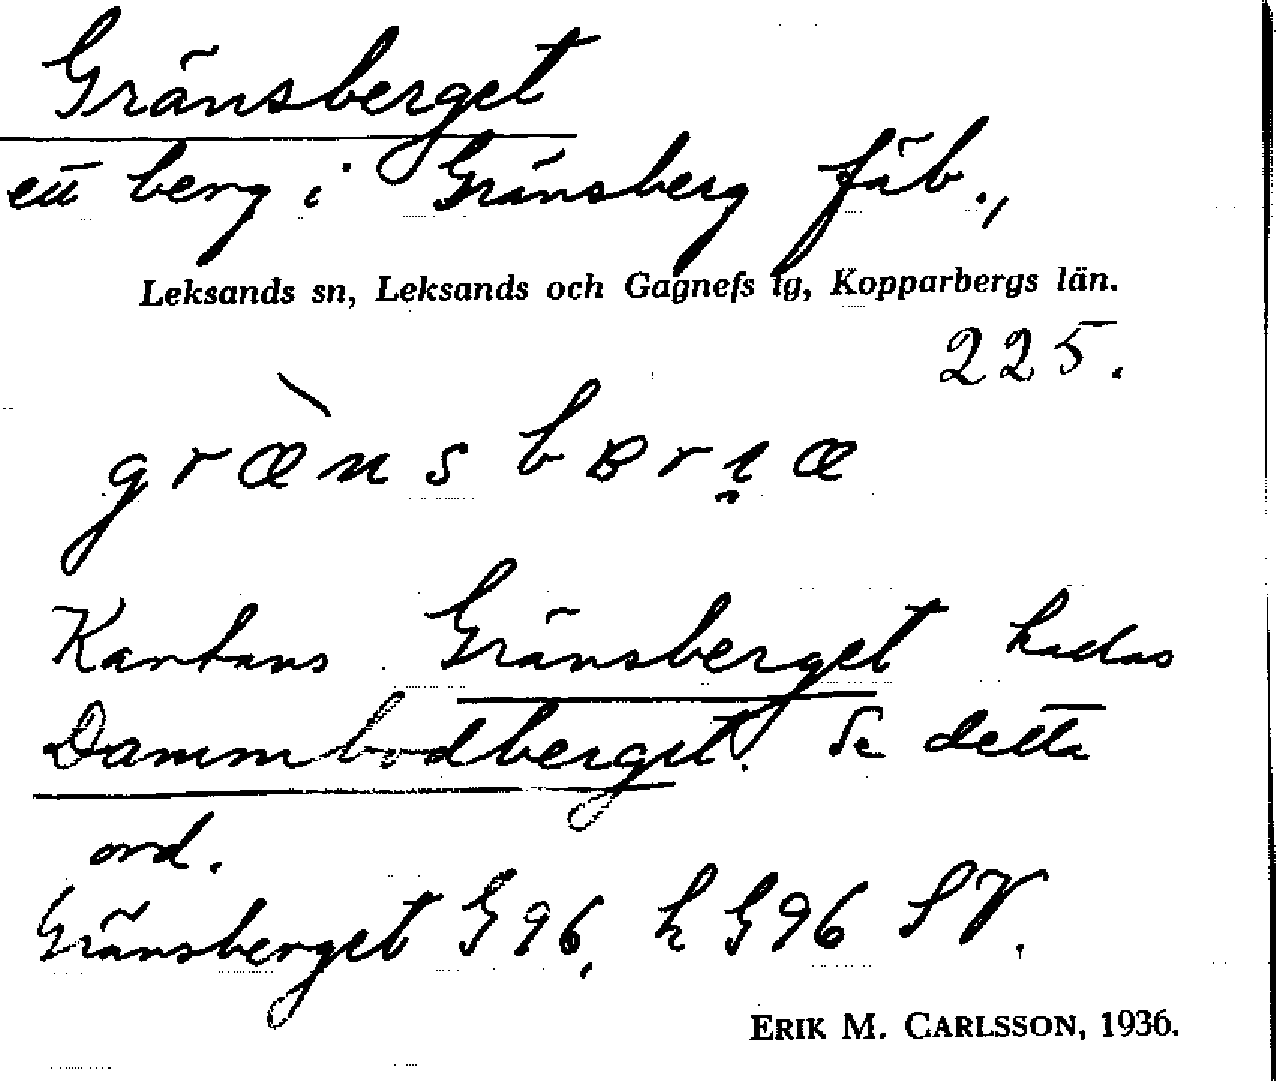 Gränsberget
ett berg i Gränsberg fäb.,
Leksands sn, Leksands och Gagnefs tg, Kopparbergs län.
225.
Kartans Gränsberget kallas
Dammbodberget. Se detta
ord.
Gränsberget G96, h G96 SV.
ERIK M. CARLSSON, 1936.